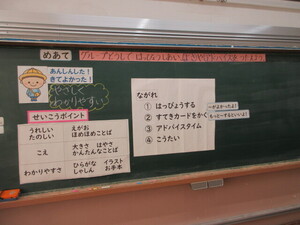 めあて
グループどうしで はっぴょうしあい
あんしんした!
きてよかった!
やさしく
わかりやすい
せいこうポイント
うれしい
たのしい
えがお
ほめほめことば
こえ
大きさ はやさ
かんたんなことば
わかりやすさ
ひらがな イラスト
しゃしん お手本
ながれ
① はっぴょうする
② すてきカードをかく
③ アドバイスタイム
④ こうたい
〜がよかったよ!
もっと〜するといいよ!